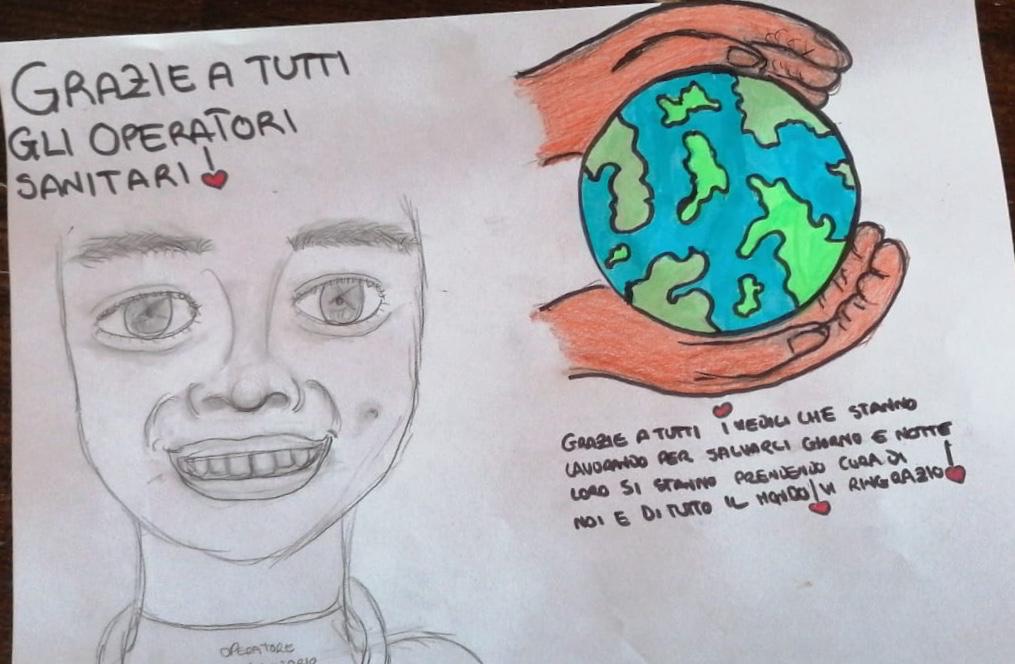 GRAZIE A TUTTI
GLI OPERATORI
SANITARI!
GRAZIE A TUTTI I MEDICI CHE STANNO
LAVORANDO PER SALVARCI GIORNO E NOTTE
LORO SI STANNO PRENDENDO CURA DI
NOI E DI TUTTO IL MONDO! VI RINGRAZIO!
OPERATORE